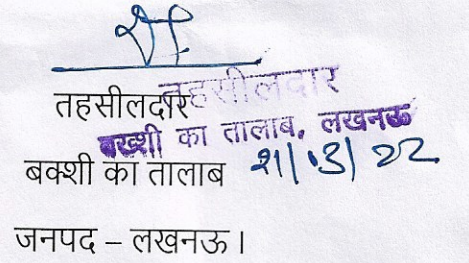 तहसीलदार
तहसीलदार
बख्शी का तालाब, लखनऊ
बक्शी का तालाब
जनपद – लखनऊ ।